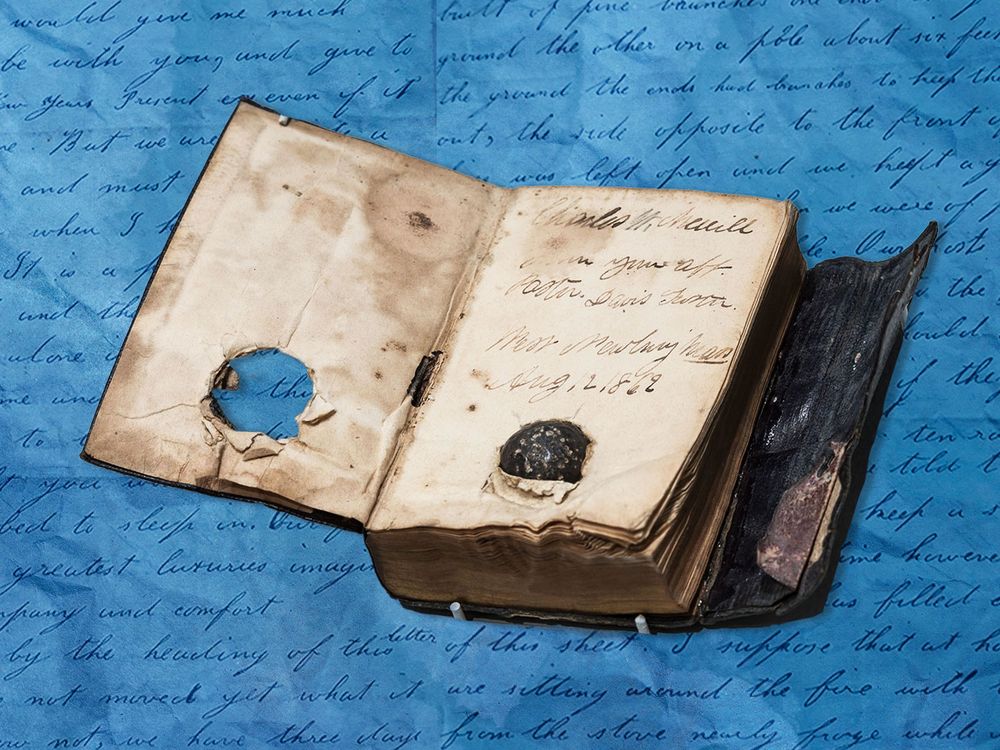 would give me much
be with you, and give to
New Years Present even if it
But we are to a
and must
when I h
It is a p
and th
alone
me un
to
t you
bed to sleep in. Our
greatest luxuries imagin
mpany and comfort
by the heading of this letter of this sheet I suppose that at h
not moved yet what it are sitting around the fire with
w not, we have three days from the stove nearly froze while
built of pine branches one end
ground the other on a pole about six fee
the ground the ends had branches to keep th
out, the side opposite to the front of
was left open and we kept a g
we were of p
le. Our
the
ould
if the
ten ro
told t
keep a s
time however
was filled
Charles W. Merrill
from your aff.
Pastor. Davis Foster.
West Newbury Mass
Aug. 12, 1862